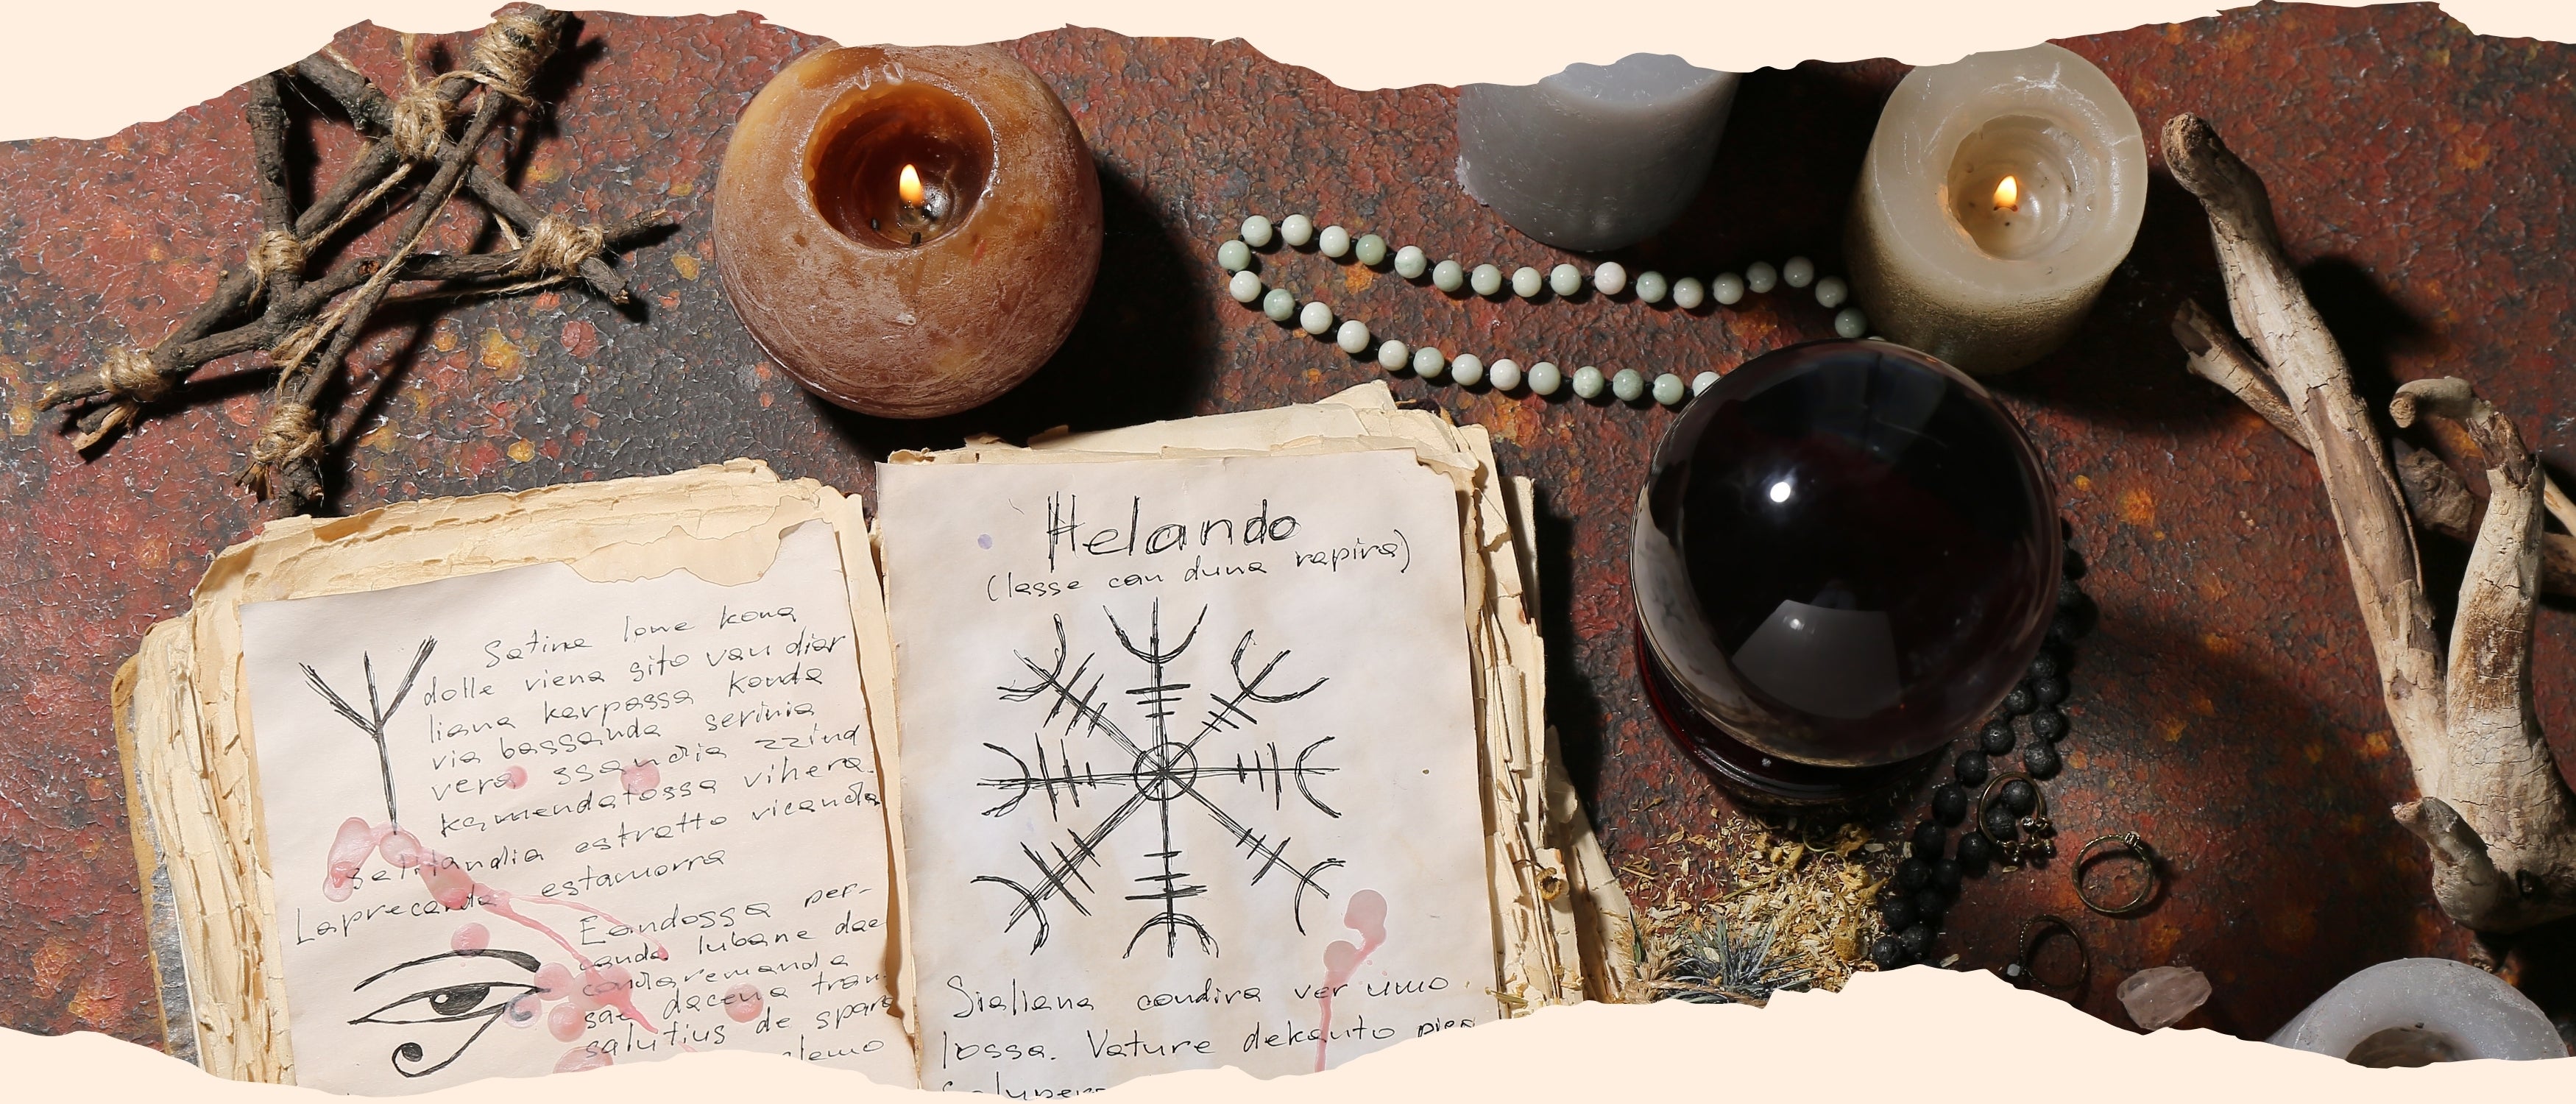 Satina lowe kona
dolle viena sito van diar
liana karpassa konda
via bassanda serinia
vera ssandia zzind
kamendatossa vihera.
estratto vicanda
selilandia
estamorra
Laprecanda
Eandossa per-
canda lubane dae
condaremanda
sae dacena tran-
salutius de spara
Helando
(lasse can duna rapira)
Sialiana condira ver umo.
lossa. Vature dekanto